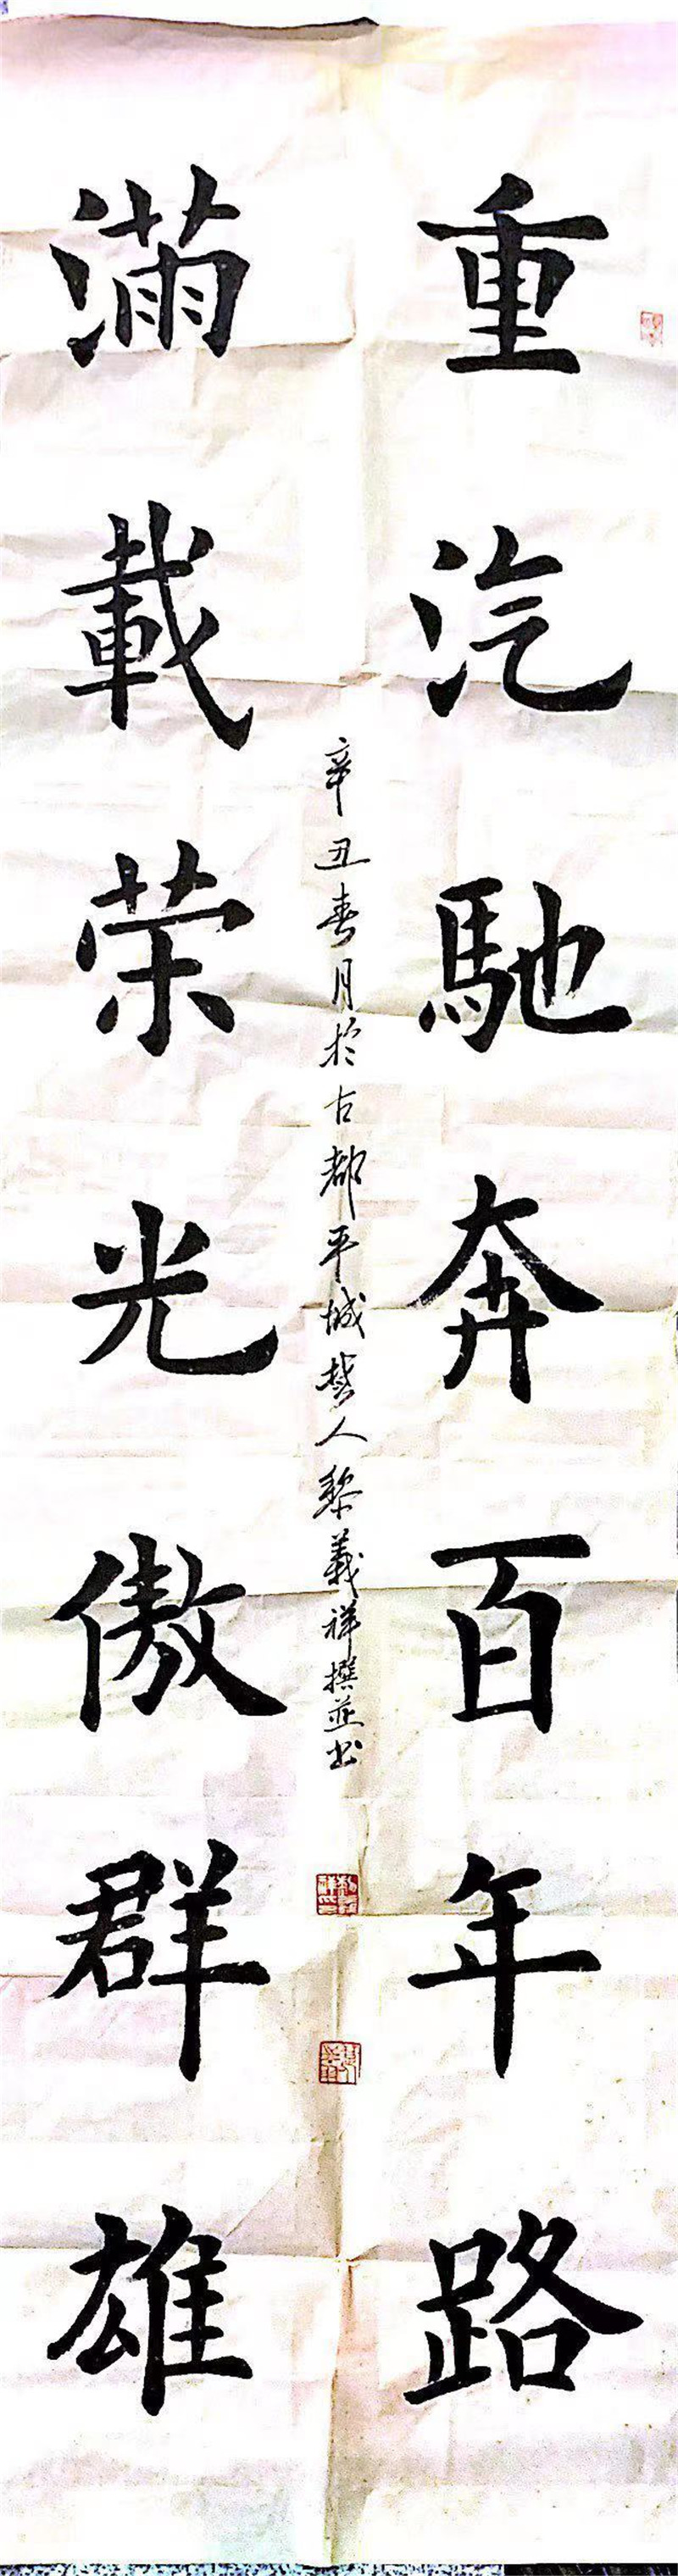 重汽馳奔百年路
滿載荣光傲群雄
辛丑春月於古都平城替人黎義祥撰並书